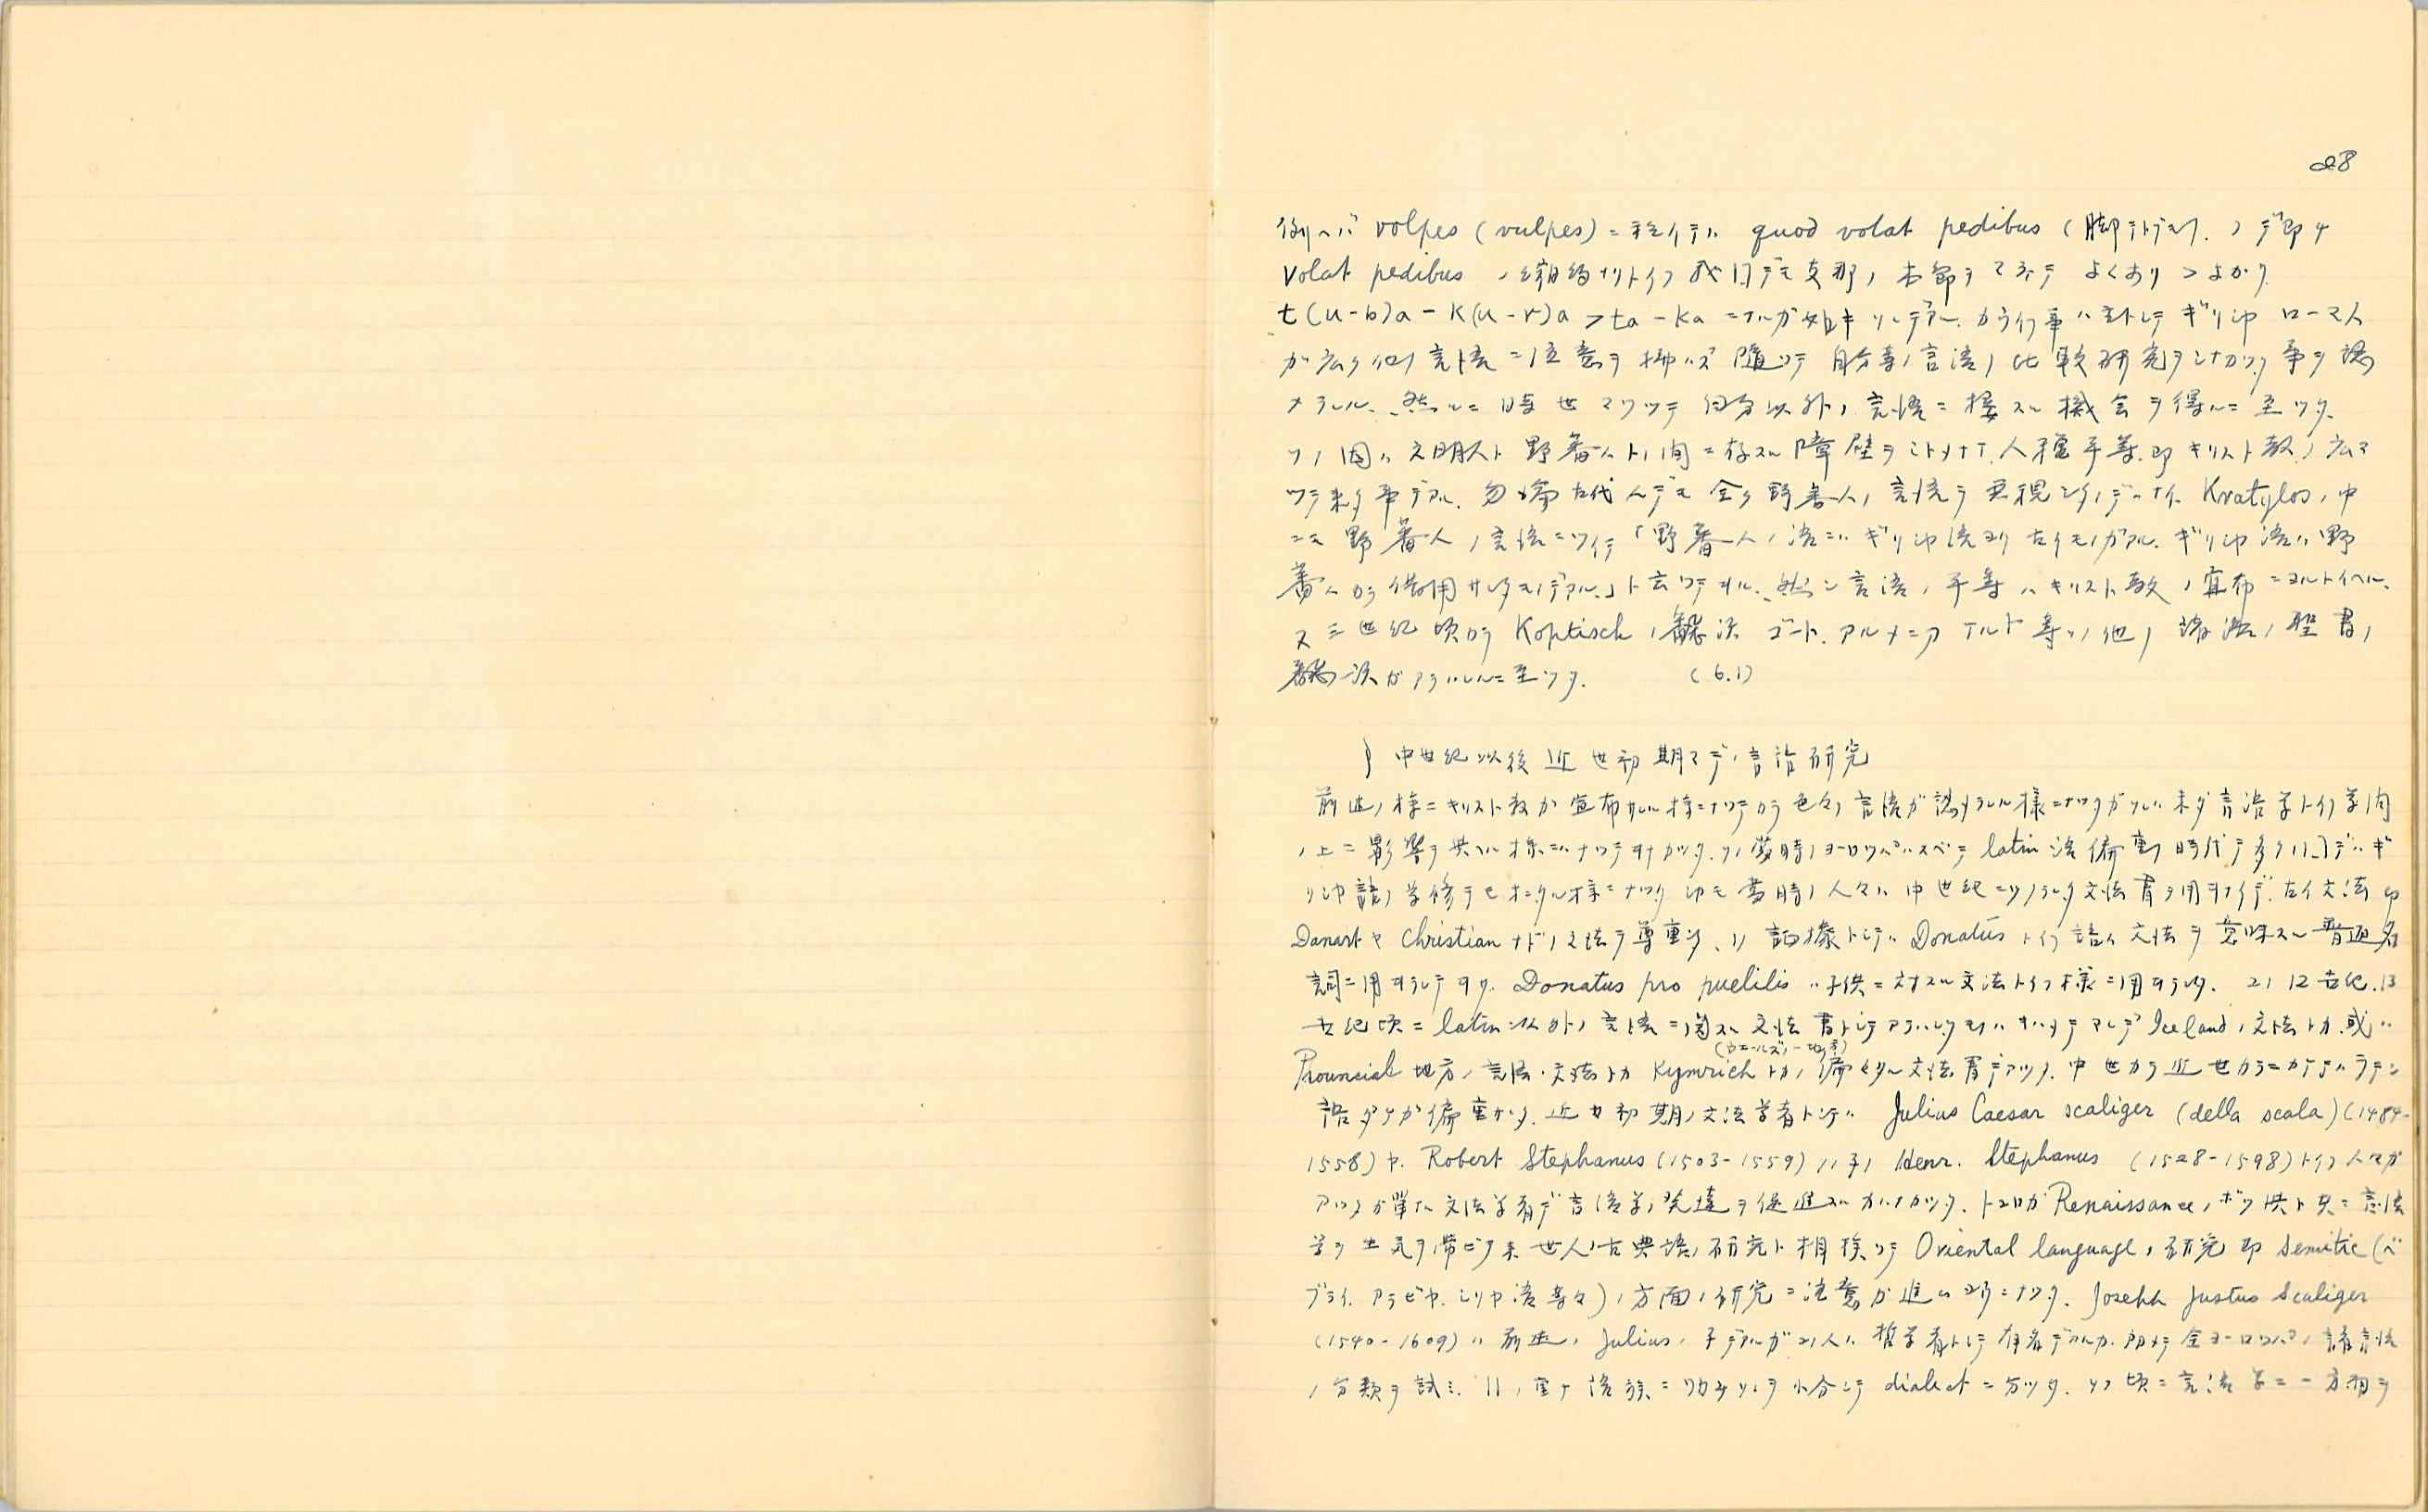 28
例ヘバ volpes (vulpes) = 就イテハ quod volat pedibus (脚デトブモノ.) デ即チ
volat pedibus ノ縮約ナリトイフ 我国デモ支那ノ 本節ヲマネテ よくあり > よかり
t(u-b)a - k(u-r)a > ta - ka ニナルガ如キソレデアル. カヽル事ハ主トシテ ギリシヤ ローマ人
ガ広ク他ノ言語ニ注意ヲ拂ハズ 随ツテ 自分等ノ言語ノ比較研究ヲシナカツタ事ヲ認
メラレル. 然ルニ 時世 マワツテ 自分以外ノ言語ニ接スル機会ヲ得ルニ至ツタ.
ソノ因ハ文明人ト野蕃人トノ間ニ存スル障壁ヲミトメナイ. 人種平等. 即キリスト教ノ広マ
ツテ来タ事デアル. 勿論古代人デモ全ク野蕃人ノ言語ヲ無視シタノデハナイ. Kratylos ノ中
ニモ 野蕃人ノ言語ニツイテ「野蕃人ノ語ニハギリシヤ語ヨリ古イモノガアル. ギリシヤ語ハ野
蕃人カラ借用サレタモノデアル.」ト云ツテヰル. 然シ言語ノ平等ハキリスト教ノ宣布ニヨルトイヘル.
又三世紀頃カラ Koptisch ノ飜訳 ゴート. アルメニア ケルト 等ソノ他ノ諸語ノ聖書ノ
飜訳ガアラハレルニ至ツタ. (6.1)
§ 中世紀以後近世初期マデノ言語研究
前述ノ様ニキリスト教ガ宣布サレル様ニナツテカラ色々ノ言語ガ認メラレル様ニナツタガソレハ未ダ言語学トイフ学問
ノ上ニ影響ヲ與ヘル様ニハナツテヰナカツタ. ソノ当時ノヨーロツパハスベテ latin 語偏重ノ時代デ多クノ国デハギ
リシヤ語ノ学修ヲモオコタル様ニナツタ 即モ当時ノ人々ハ中世紀ニツクラレタ文法書ヲ用ヰナイデ. 古イ文法即
Danart ヤ Christian ナドノ文法ヲ尊重シタ. ソノ証拠トシテハ Donatus トイフ語ハ文法ヲ意味スル普通名
詞ニ用ヰラレテヰタ. Donatus pro puelilis ハ子供ニ対スル文法トイフ様ニ用ヰラレタ. 又ハ 12世紀. 13
世紀頃ニ latin 以外ノ言語ニ関スル文法書トシテアラハレタモノハキハメテマレデ Iceland ノ文法トカ. 或ハ
(ウエールズノ一地方)
Prouncial 地方ノ言語・文法トカ Kymrich トカノ偏セル文法書デアツタ. 中世カラ近世カラニカケテハラテン
語ダケガ偏重サレタ. 近世初期ノ文法学者トシテハ Julius Caesar scaliger (della scala) (1484-
1558) ヤ. Robert Stephanus (1503-1559) ソノ子ノ Henr. Stephanus (1528-1598) トイフ人々ガ
アツタガ単ナル文法学者デ言語学ノ発達ヲ促進スル力ハナカツタ. トコロガ Renaissance ノボツ興ト共ニ言語
学ヲ生気ヲ帯ビテ来 世人ノ古典語ノ研究ト相俟ツテ Oriental language ノ研究即 Semitic (ヘ
ブライ. アラビヤ. シリヤ語等々) ノ方面ノ研究ニ注意ガ進ムヨウニナツタ. Joseph Justus Scaliger
(1540-1609) ハ前述ノ Julius ノ子デアルガコノ人ハ哲学者トシテ有名デアルガ. 初メテ全ヨーロツパノ諸言語
ノ分類ヲ試ミ. 11ノ重ナ語族ニワカチソレヲ小分シテ dialect ニ分ツタ. ソノ頃ニ言語学ニ一方面ヲ